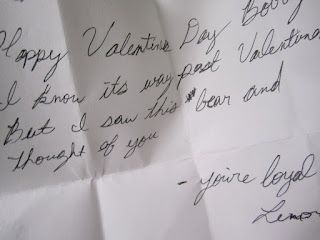 Happy Valentines Day Bobby
I know its way past Valentines
But I saw this bear and
thought of you
- you're loyal
Lemon